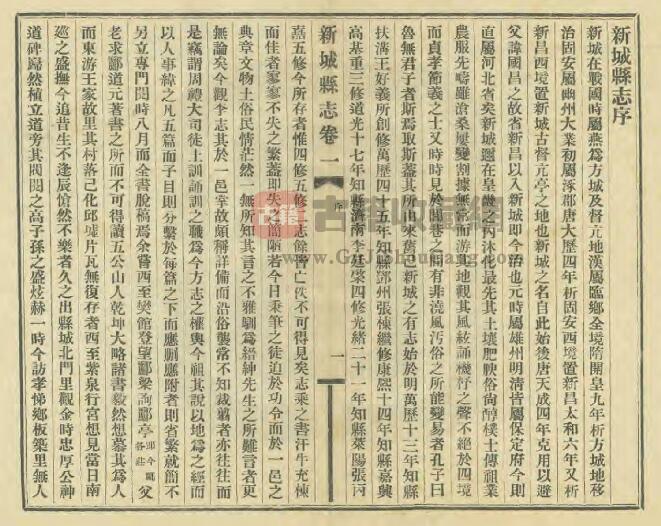 新城縣志序
新城在戰國時屬燕為方城及督亢地漢屬臨鄉全境隋開皇九年析方城地移
治固安屬幽州大業初屬涿郡唐大歷四年析固安西境置新昌太和六年又析
新昌西境置新城古督亢亭之地也新城之名自此始後唐天成四年克用以避
父諱國昌之故省新昌以入新城即今治也元時屬雄州明清皆屬保定府今則
直屬河北省矣新城邇在皇畿沐化最先其土壤肥腴俗尚醇樸士傳祖業
農服先疇雖滄桑屢變割據無常而游其地觀其風絃誦機杼之聲不絕於四境
而貞孝節義之士又時時見於閭巷之間有非澆風污俗之所能變易者孔子曰
魯無君子者斯焉取斯蓋其所由來舊已新城之有志始於明萬歷十三年知縣
扶溝王好義所創修萬歷四十五年知縣鄧州張棟繼修康熙十四年知縣嘉興
高基重三修道光十七年知縣濟南李廷棨四修光緒二十一年知縣萊陽張丙
新城縣志卷一
序
一
嘉五修今所存者惟四修五修志餘皆亡佚不可得見矣志乘之書汗牛充棟
而佳者寥寥不失之繁蕪即失之簡陋若今日秉筆之徒迫於功令而於一邑之
典章文物土俗民情茫然一無所知其言之不雅馴為縉紳先生之所難言者更
無論矣今觀李志其於一邑掌故頗稱詳備而沿俗襲常不知裁翦者亦往往而
是竊謂周禮大司徒土訓誦訓之職為今方志之權輿今祖其說以地為之經而
以人事緯之凡五篇而子目則分繫於每篇之下而應刪應附者則省繁就簡不
另立專門閱時八月而全書脫稿焉余嘗西至樊館登望酈梁詢酈亭即今酈各莊父
老求酈道元著書之所而不可得讀五公山人乾坤大略諸書毅然想慕其為人
而東游王家故里其村落已化邱墟片瓦無復存者西至紫泉行宮想見當日南
巡之盛撫今追昔生不逢辰愴然不樂者久之出縣城北門里觀金時忠厚公神
道碑巋然植立道旁其閥閱之高子孫之盛炫赫一時今訪孝悌鄉板築里無人
古籍收藏網
www.GuJiShuwang.com